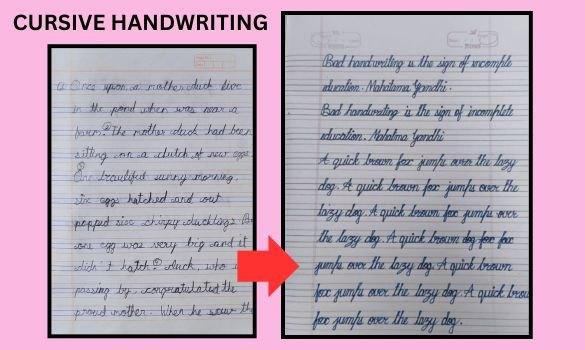 CURSIVE HANDWRITING
a Once upon a mother duck live
in the pond when was near a
farm. The mother duck had been
sitting on a clutch of new eggs.
One beautiful sunny morning,
six eggs hatched and out
popped six chirpy ducklings. But
one egg was very big and it
didn't hatch. duck, who
passing by, congratulated the
proud mother. When he saw the
Bad handwriting is the sign of incomplete
education. Mahatama Gandhi.
Bad handwriting is the sign of incomplete
education. Mahatma Gandhi
A quick brown fox jumps over the lazy
dog. A quick brown fox jumps over the
lazy dog. A quick brown fox jumps over
the lazy dog. A quick brown fox
jumps over the lazy dog. A quick brown
fox jumps over the lazy dog. A quick brown
fox jumps over the lazy dog.